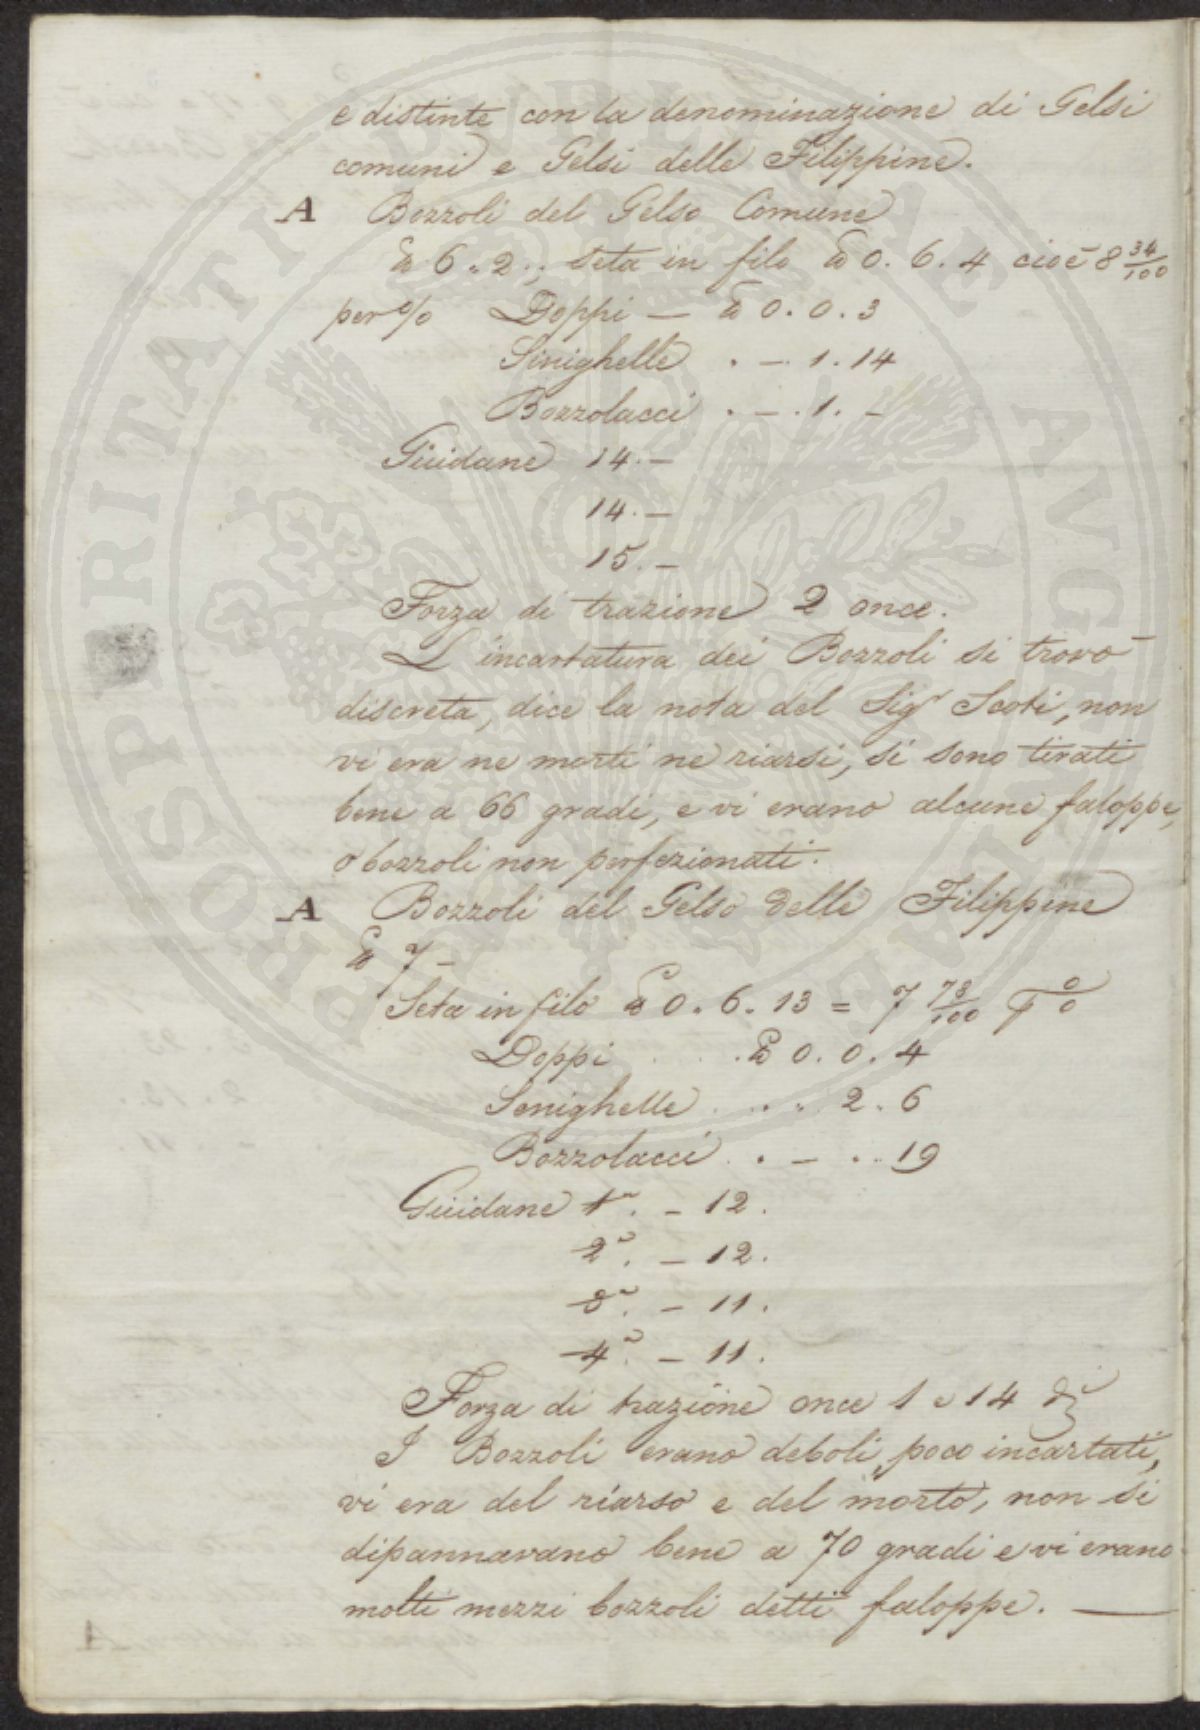 e distinte con la denominazione di Gelsi
comuni e Gelsi delle Filippine.
A Bozzoli del Gelso Comune
℔ 6 . 2 . ; seta in filo ℔ 0. 6. 4 cioè 8 34/100
per % Doppi — ℔ 0. 0. 3
Sinighelle . — 1. 14
Bozzolacci . — . 1. –
Guidane 14. –
14. –
15. –
Forza di trazione 2 once.
L'incartatura dei Bozzoli si trovò
discreta, dice la nota del Sigr Scoti, non
vi era ne morti ne riarsi, si sono tirati
bene a 66 gradi, e vi erano alcune faloppe,
o bozzoli non perfezionati.
A Bozzoli del Gelso delle Filippine
℔ 7 –
Seta in filo ℔ 0. 6. 13 = 7 73/100 p %
Doppi . . . ℔ 0. 0. 4
Senighelle . . . . 2. 6
Bozzolacci . . – . . 19
Guidane 1a. – 12.
2a. – 12.
3a. – 11.
4a. – 11.
Forza di trazione once 1 e 14
I Bozzoli erano deboli, poco incartati,
vi era del riarso e del morto, non si
dipannavano bene a 70 gradi e vi erano
molti mezzi bozzoli detti faloppe. —
PROSPERITATI PVBLICAE AVGENDAE